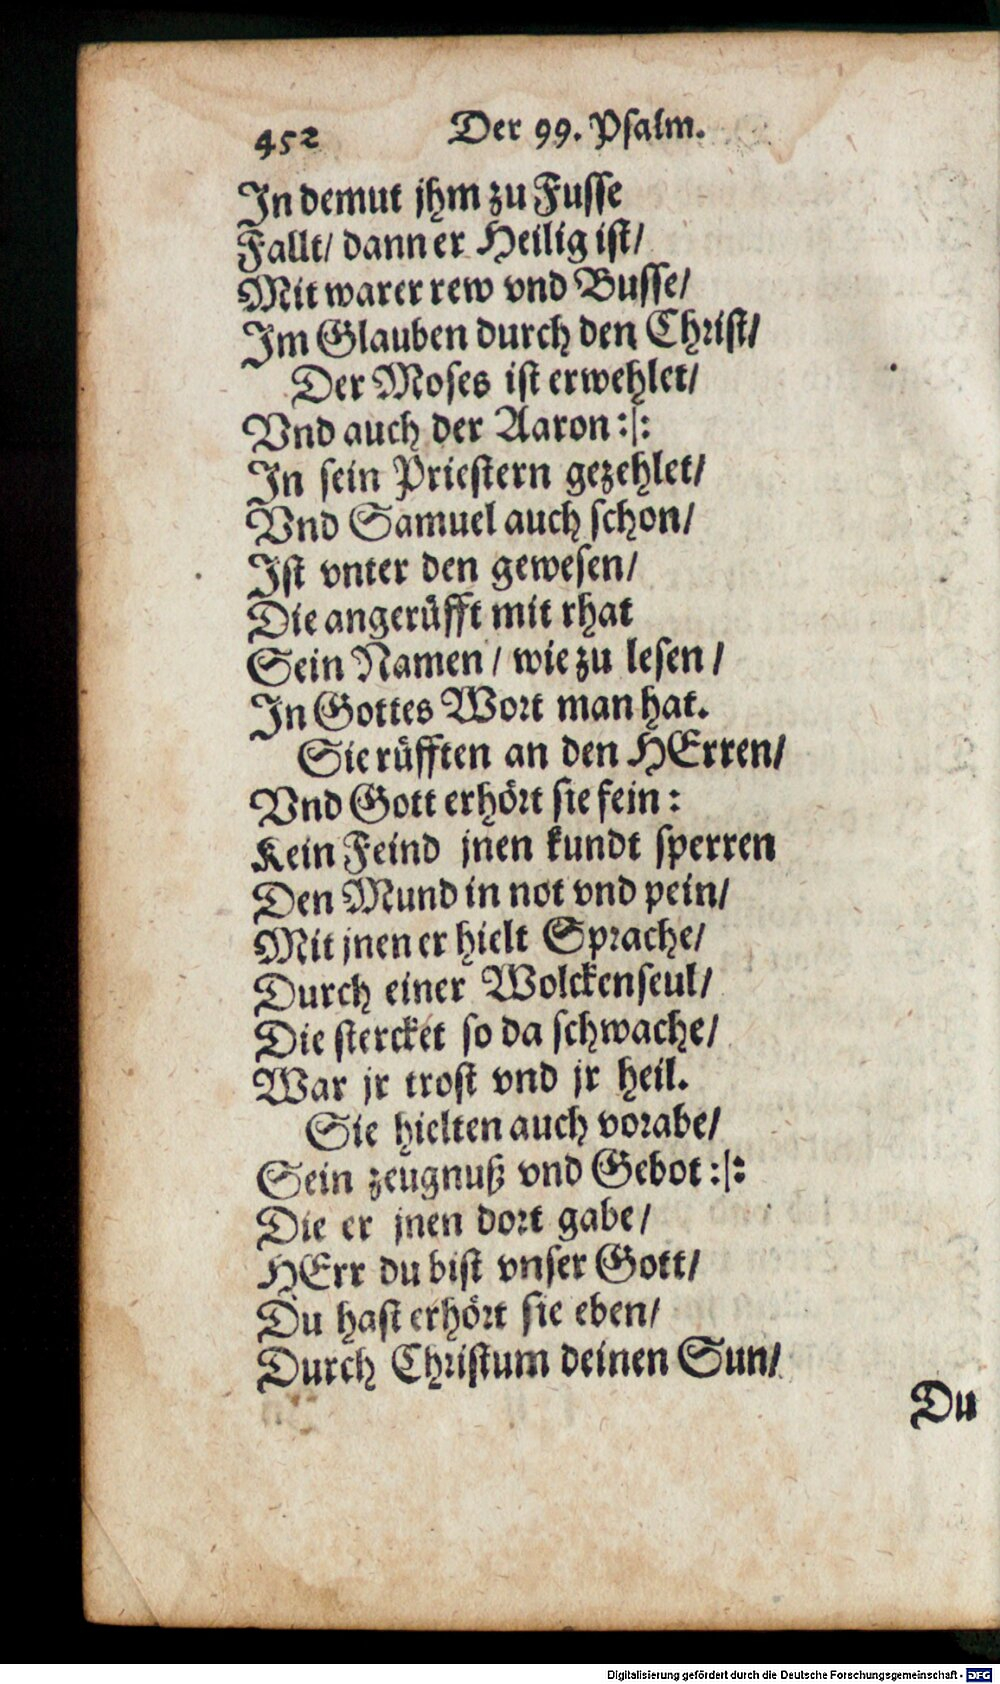 452 Der 99. Psalm.
In demut jhm zu Fusse
Fallt/ dann er Heilig ist/
Mit warer rew vnd Busse/
Im Glauben durch den Christ/
Der Moses ist erwehlet/
Vnd auch der Aaron :|:
In sein Priestern gezehlet/
Vnd Samuel auch schon/
Ist vnter den gewesen/
Die angerüfft mit rhat
Sein Namen / wie zu lesen /
In Gottes Wort man hat.
Sie rüfften an den HErren/
Vnd Gott erhört sie fein :
Kein Feind jnen kundt sperren
Den Mund in not vnd pein/
Mit jnen er hielt Sprache/
Durch einer Wolckenseul/
Die stercket so da schwache/
War jr trost vnd jr heil.
Sie hielten auch vorabe/
Sein zeugnuß vnd Gebot :|:
Die er jnen dort gabe/
HErr du bist vnser Gott/
Du hast erhört sie eben/
Durch Christum deinen Sun/
Du
Digitalisierung gefördert durch die Deutsche Forschungsgemeinschaft - DFG